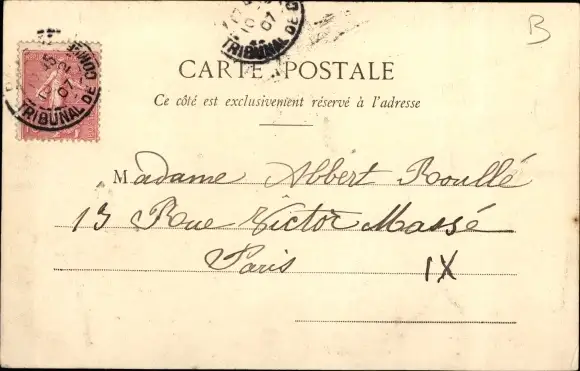 B
CARTE POSTALE
Ce côté est exclusivement réservé à l'adresse
TRIBUNAL DE
07
TRIBUNAL DE
07
Madame Albert Roullé
13 Rue Victor Massé
Paris IX